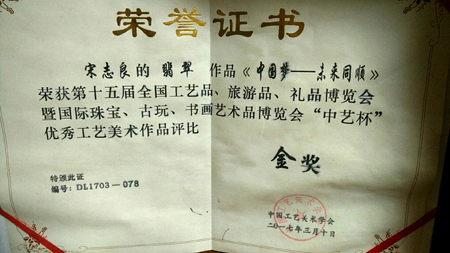 荣誉证书
宋志良的 翡翠 作品《中国梦——未来同顺》
荣获第十五届全国工艺品、旅游品、礼品博览会
暨国际珠宝、古玩、书画艺术品博览会“中艺杯”
优秀工艺美术作品评比
金奖
特颁此证
编号：DL1703-078
中国工艺美术学会
二〇一七年三月十日